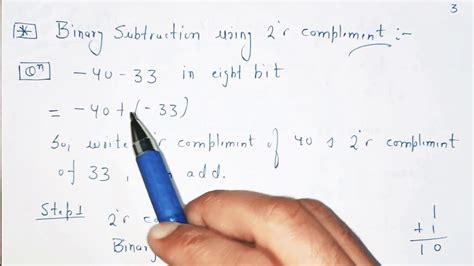 3
* Binary Subtraction using 2's compliment :-
Qⁿ -40-33 in eight bit
= -40+(-33)
So, write compliment of 40 & 2's compliment
of 33, add.
Step1 2's
Binary
1
+ 1
1 0